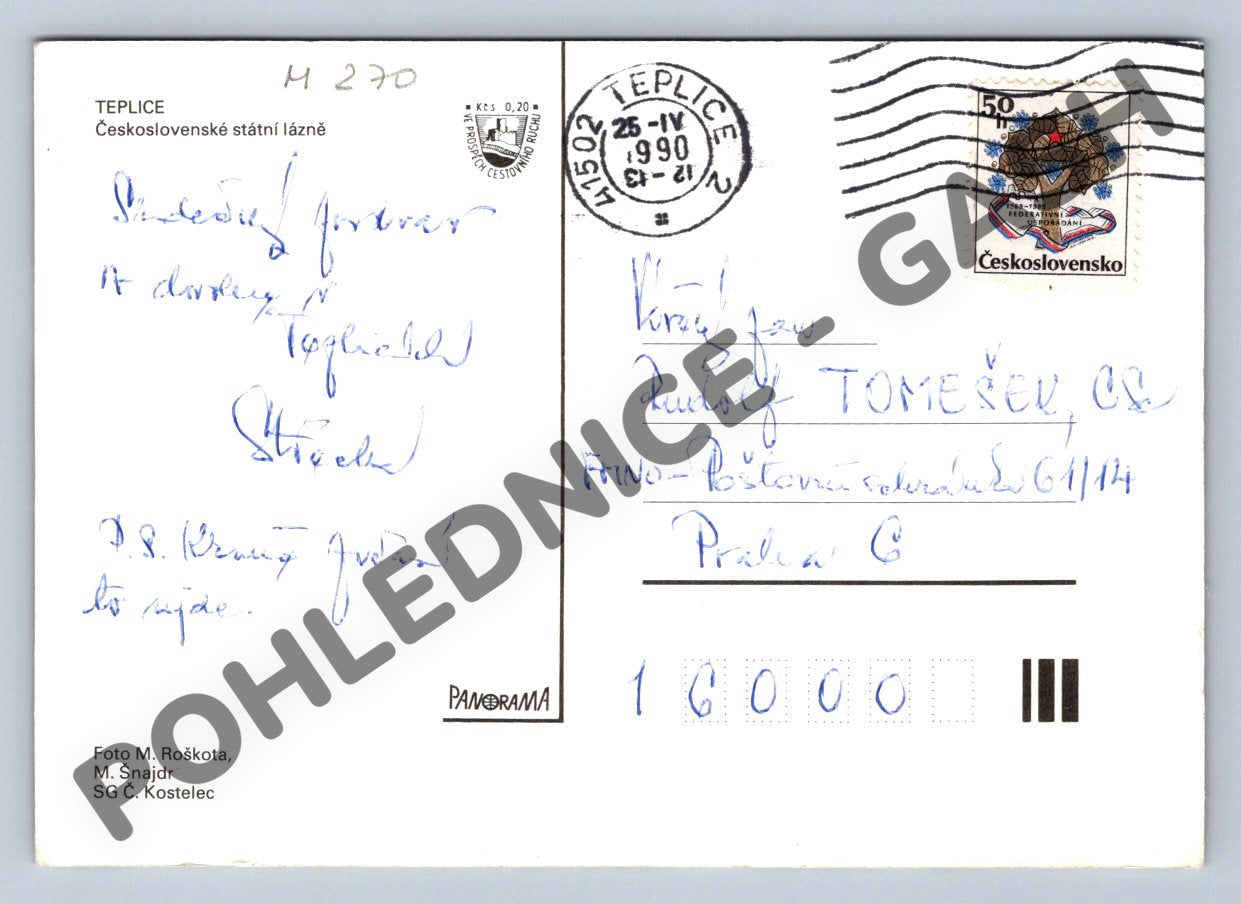 M 270
TEPLICE
Československé státní lázně
Kčs 0,20
VE PROSPĚCH CESTOVNÍHO RUCHU
Srdečný pozdrav
z dovolené v
Teplicích
P.S.
to vyjde.
PANORAMA
Foto M. Roškota,
M. Šnajdr
SG Č. Kostelec
41502 TEPLICE 2
25 -IV
1990
12 -13
50 h
1968-1989
FEDERATIVNÍ
USPOŘÁDÁNÍ
Československo
Vážený pan
Rudolf TOMEŠEK, CSc
Poštovní schránka 61/14
Praha 6
1 6 0 0 0
POHLEDNICE - GACH